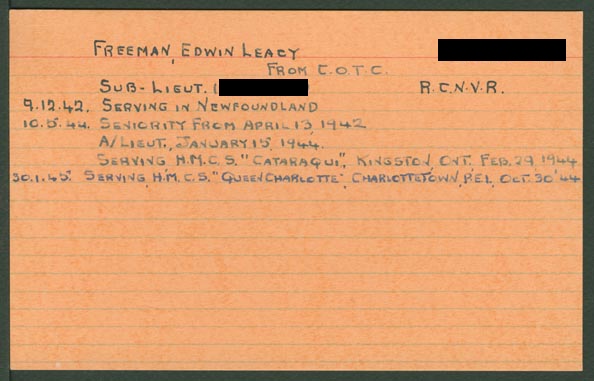 FREEMAN, EDWIN LEACY
FROM C.O.T.C.
SUB-LIEUT. ( ) R.C.N.V.R.
9.12.42. SERVING IN NEWFOUNDLAND
10.5.44. SENIORITY FROM APRIL 13, 1942
A/LIEUT., JANUARY 15, 1944.
SERVING H.M.C.S. "CATARAQUI", KINGSTON, ONT. FEB. 29, 1944
30.1.45. SERVING H.M.C.S. "QUEEN CHARLOTTE", CHARLOTTETOWN, P.E.I. OCT. 30 '44